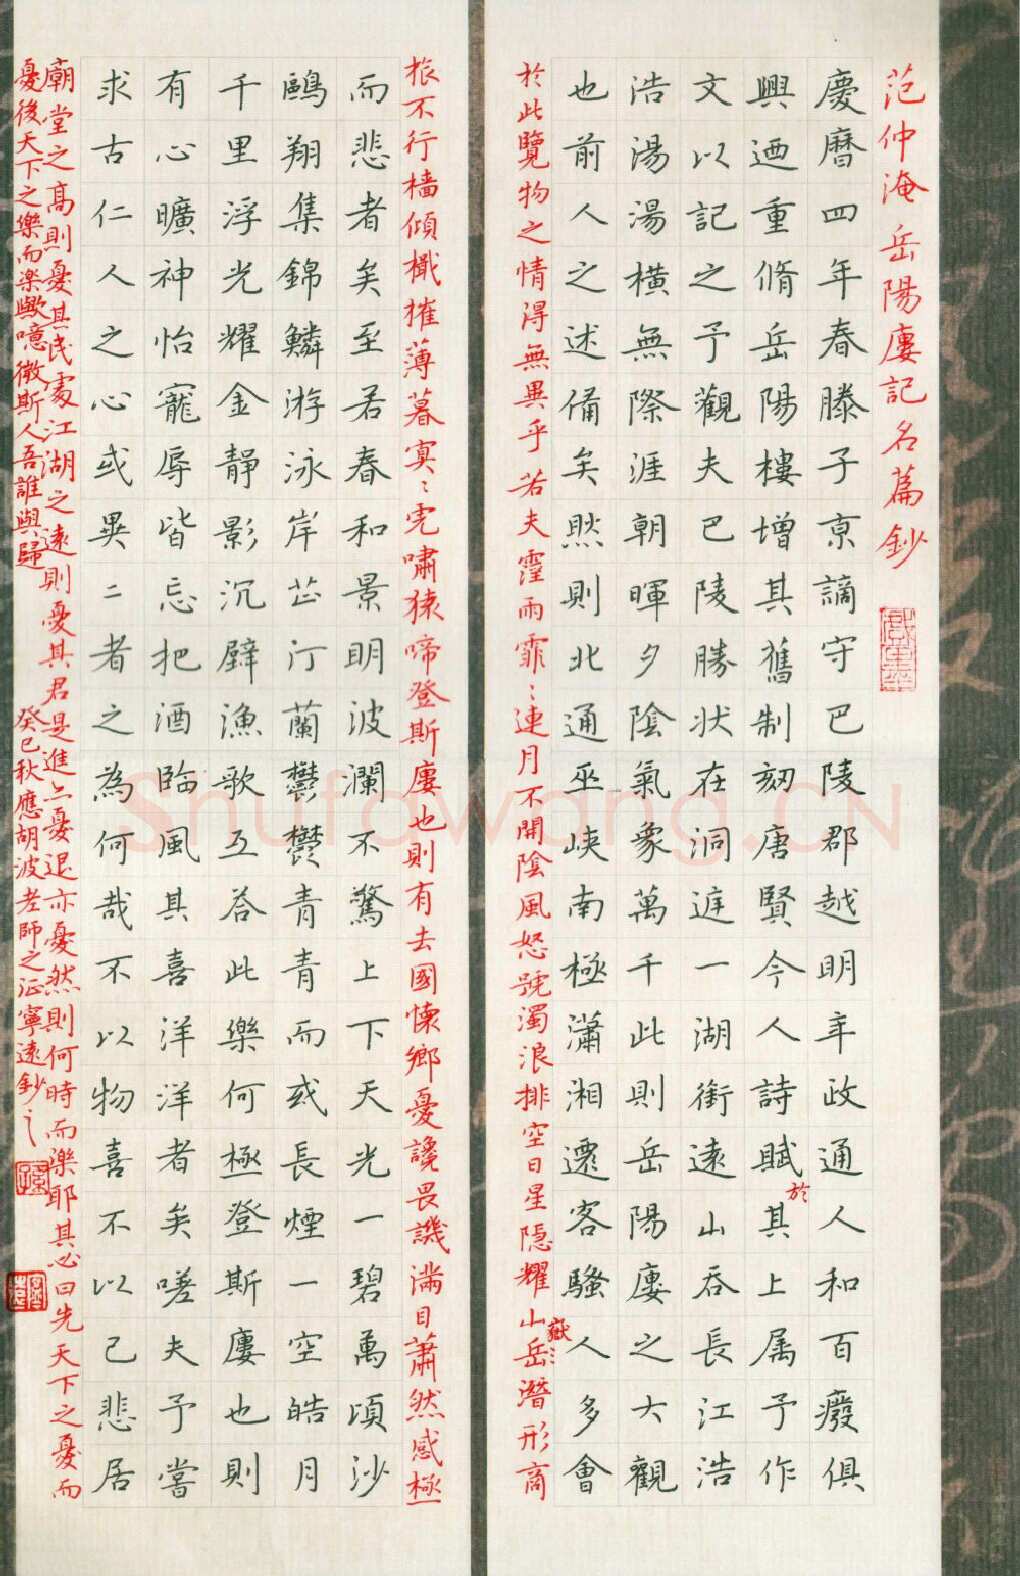 范仲淹岳陽廔記名篇鈔
慶曆四年春滕子京謫守巴陵郡越明年政通人和百癈俱
興迺重脩岳陽樓增其舊制刻唐賢今人詩賦其上属予作
於
文以記之予觀夫巴陵勝状在洞庭一湖銜遠山吞長江浩
浩湯湯橫無際涯朝暉夕陰氣象萬千此則岳陽廔之大觀
也前人之述備矣然則北通巫峽南極瀟湘遷客騷人多會
於此覽物之情得無異乎若夫霪雨霏〻連月不開陰風怒號濁浪排空日星隱耀山岳潛形商
嶽〻
旅不行檣傾檝摧薄暮冥〻虎嘯猿啼登斯廔也則有去國懷鄉憂讒畏譏滿目蕭然感極
而悲者矣至若春和景明波瀾不驚上下天光一碧萬頃沙
鷗翔集錦鱗游泳岸芷汀蘭鬱鬱青青而或長煙一空皓月
千里浮光耀金靜影沉璧漁歌互荅此樂何極登斯廔也則
有心曠神怡寵辱皆忘把酒臨風其喜洋洋者矣嗟夫予嘗
求古仁人之心或異二者之為何哉不以物喜不以己悲居
廟堂之高則憂其民處江湖之遠則憂其君是進亦憂退亦憂然則何時而樂耶其必曰先天下之憂而
憂後天下之樂而樂歟噫微斯人吾誰與歸
癸巳秋應胡波老師之征寧遠鈔之
Shufawang.CN